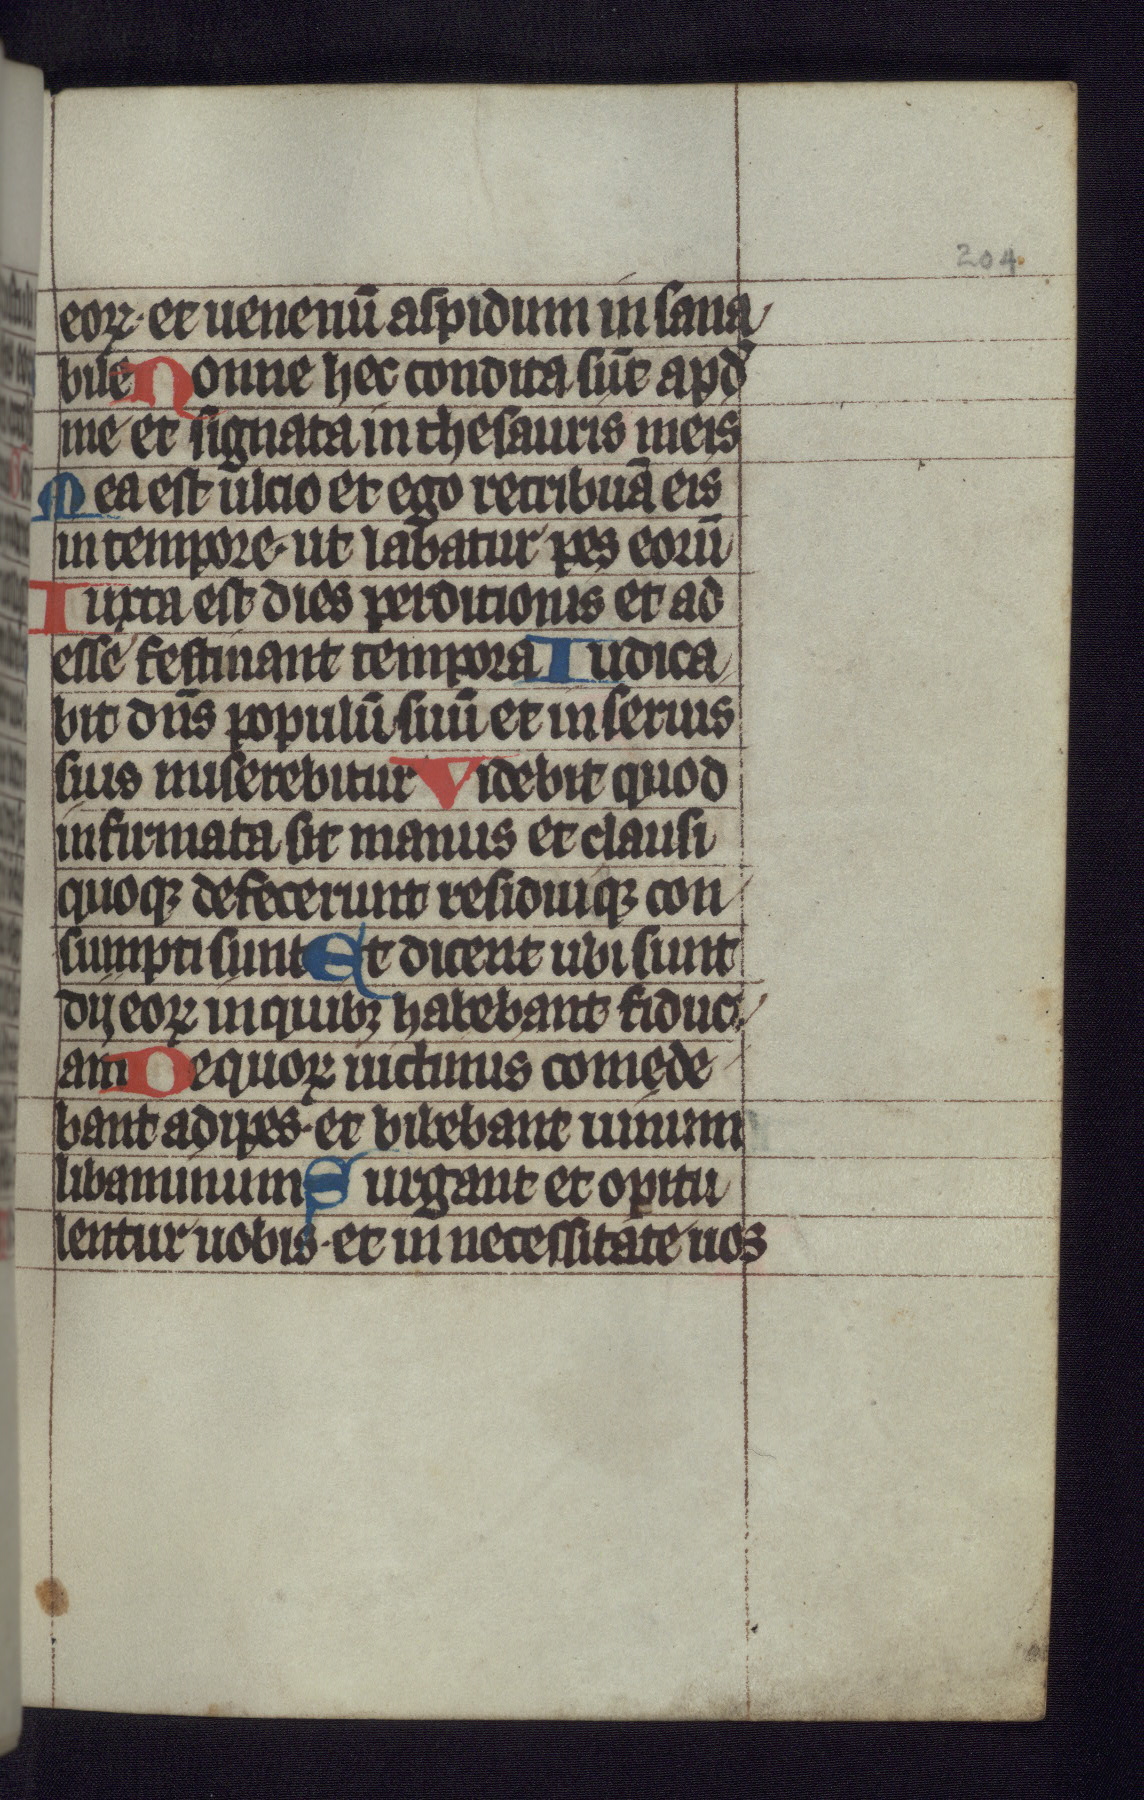 204
eoꝝ· et uenenū aspidum in sana
bile Nonne hec condita sūt apd̕
me et signata in thesauris meis
Mea est ulcio et ego retribuā eis
in tempore· ut labatur pes eorū
Iuxta est dies perditionis et ad
esse festinant tempora Iudica
bit dn̄s populū suū et in seruis
suis miserebitur Videbit quod
infirmata sit manus et clausi
quoqꝫ defecerunt residuiqꝫ con
sumpti sunt Et dicent ubi sunt
dij eoꝝ in quibꝫ habebant fiduci
am De quoꝝ uictimis comede
bant adipes· et bibebant uinum
libaminum Surgant et opitu
lentur uobis· et in necessitate uos